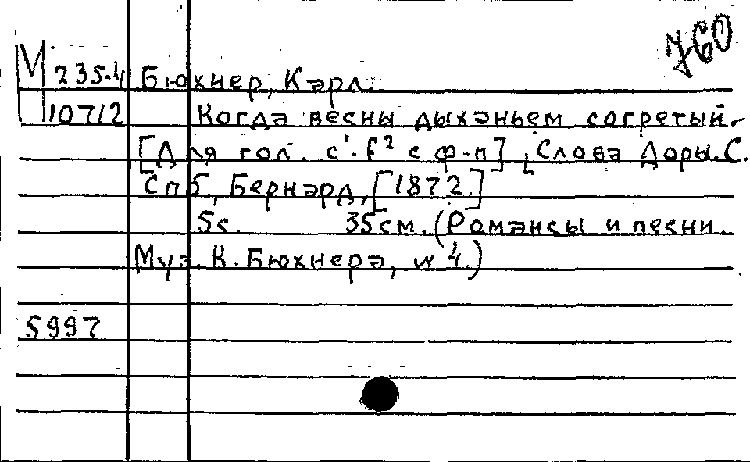 760
М 235.4 Бюхнер, Карл.
107/2 Когда весны дыханьем согретый.
[Для гол. c¹.f² с ф-п] , Слова Доры.С.
Спб, Бернард, [1872.]
5с. 35см. (Романсы и песни.
Муз. К. Бюхнера, № 4.)
5997